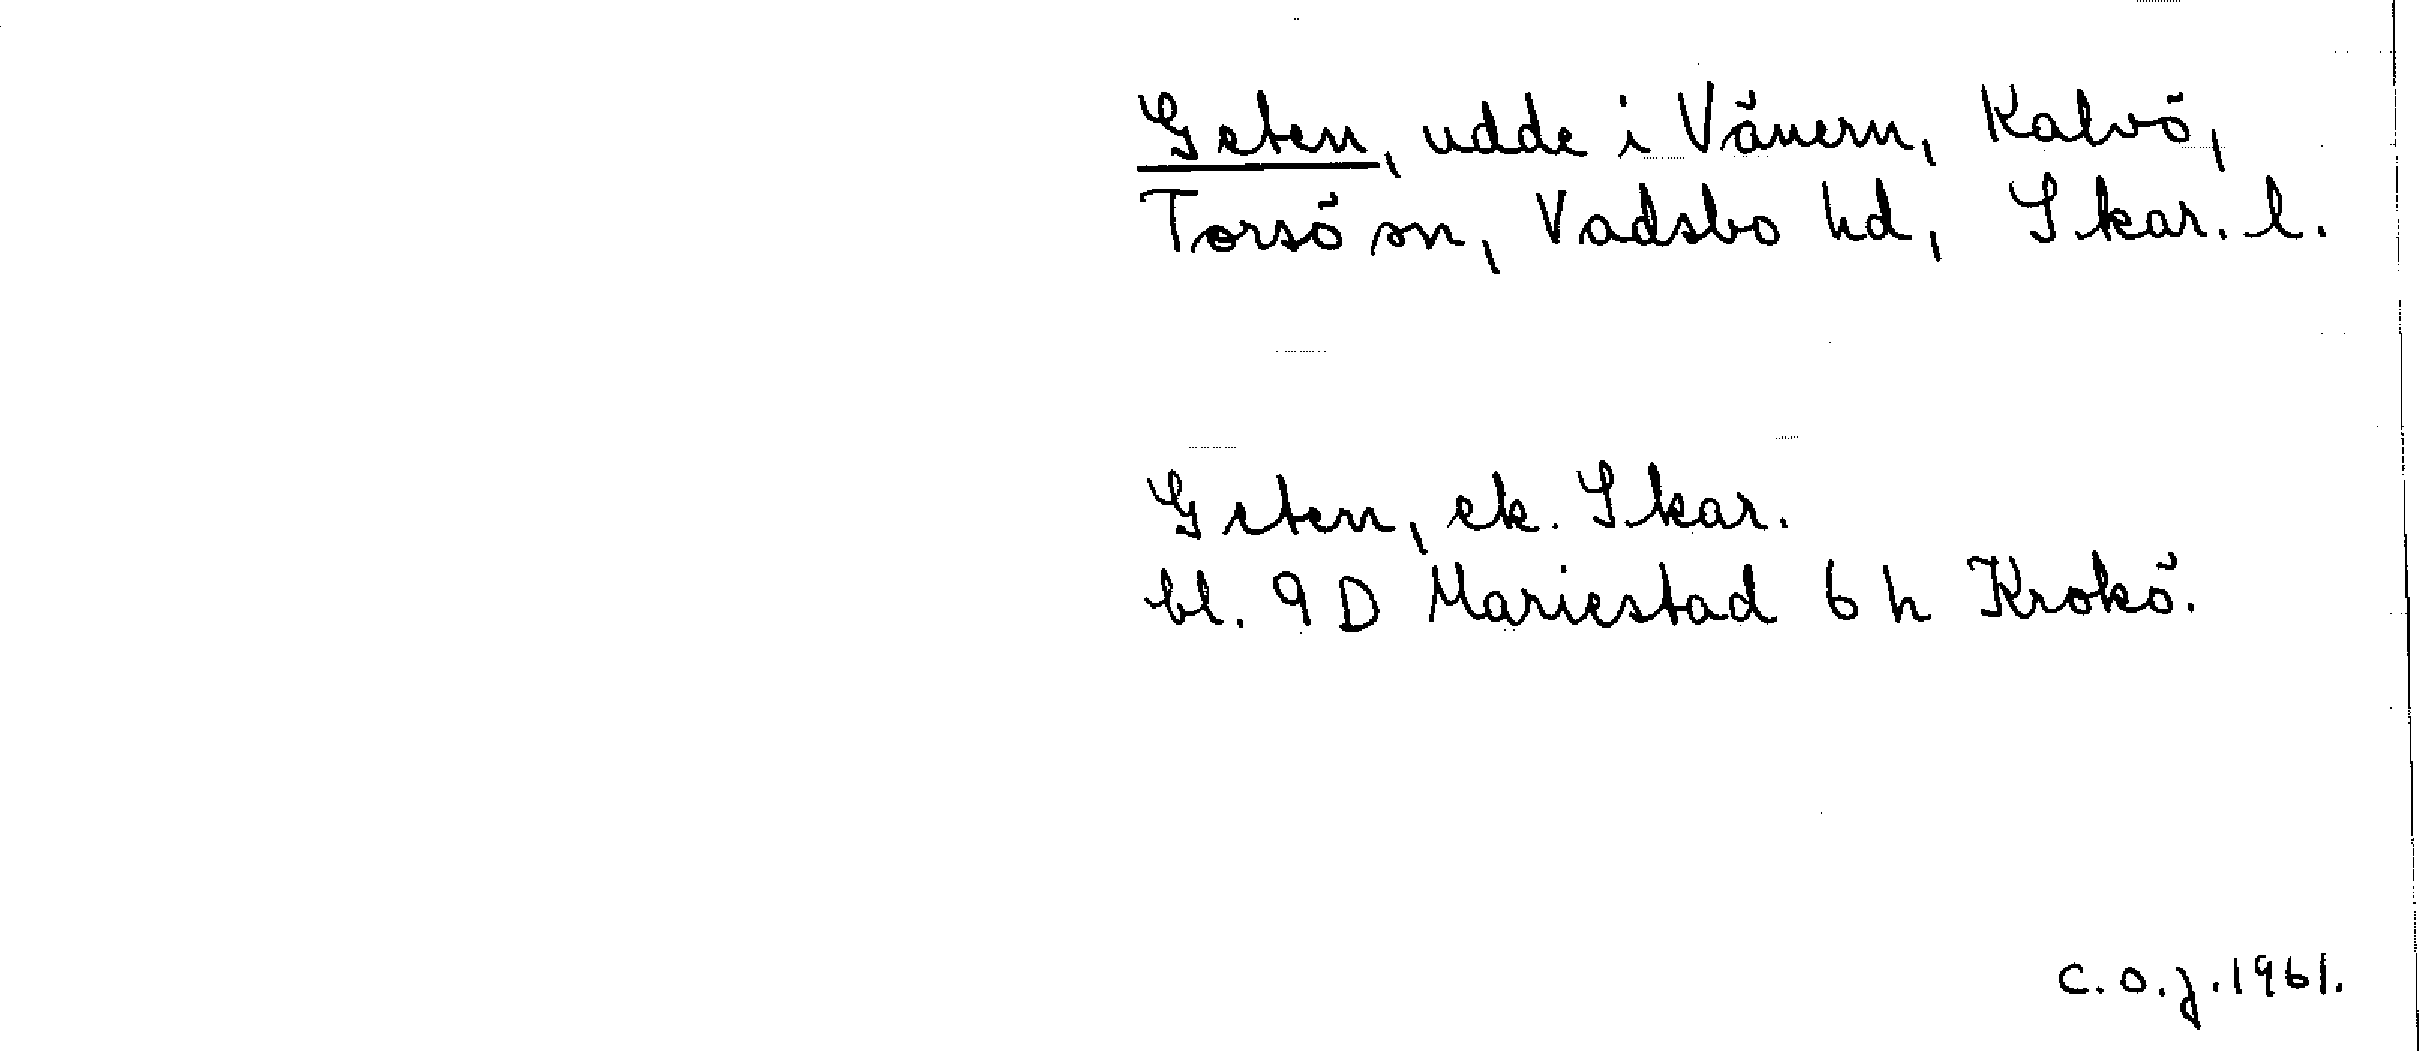 Geten, udde i Vänern, Kalvö,
Torsö sn, Vadsbo hd, Skar. l.
Geten, ek. Skar.
bl. 9D Mariestad 6 h Krokö.
C.O.J. 1961.